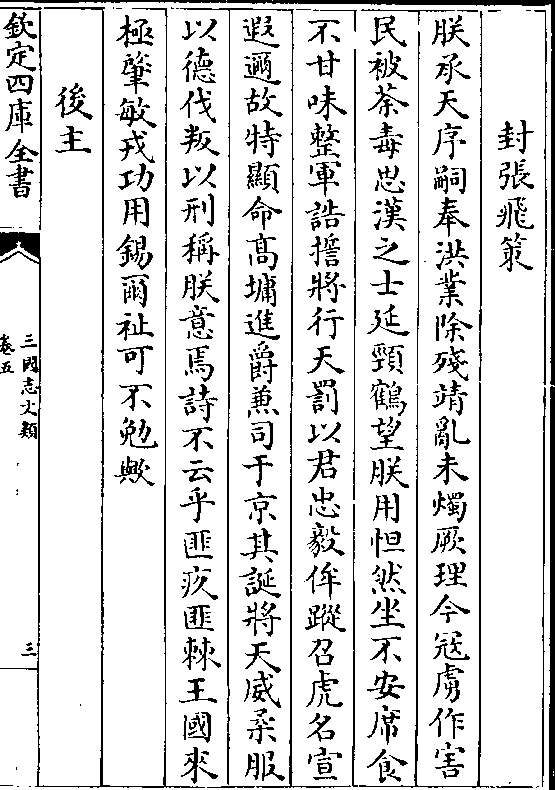 封張飛策
朕承天序嗣奉洪業除殘靖亂未燭厥理今冦虜作害
民被荼毒思漢之士延頸鶴望朕用怛然坐不安席食
不甘味整軍誥誓將行天罰以君忠毅侔蹤召虎名宣
遐邇故特顯命髙墉進爵兼司于京其誕將天威柔服
以德伐叛以刑稱朕意焉詩不云乎匪疚匪棘王國來
極肇敏戎功用錫爾祉可不勉歟
後主
欽定四庫全書
三國志文類
卷五
三